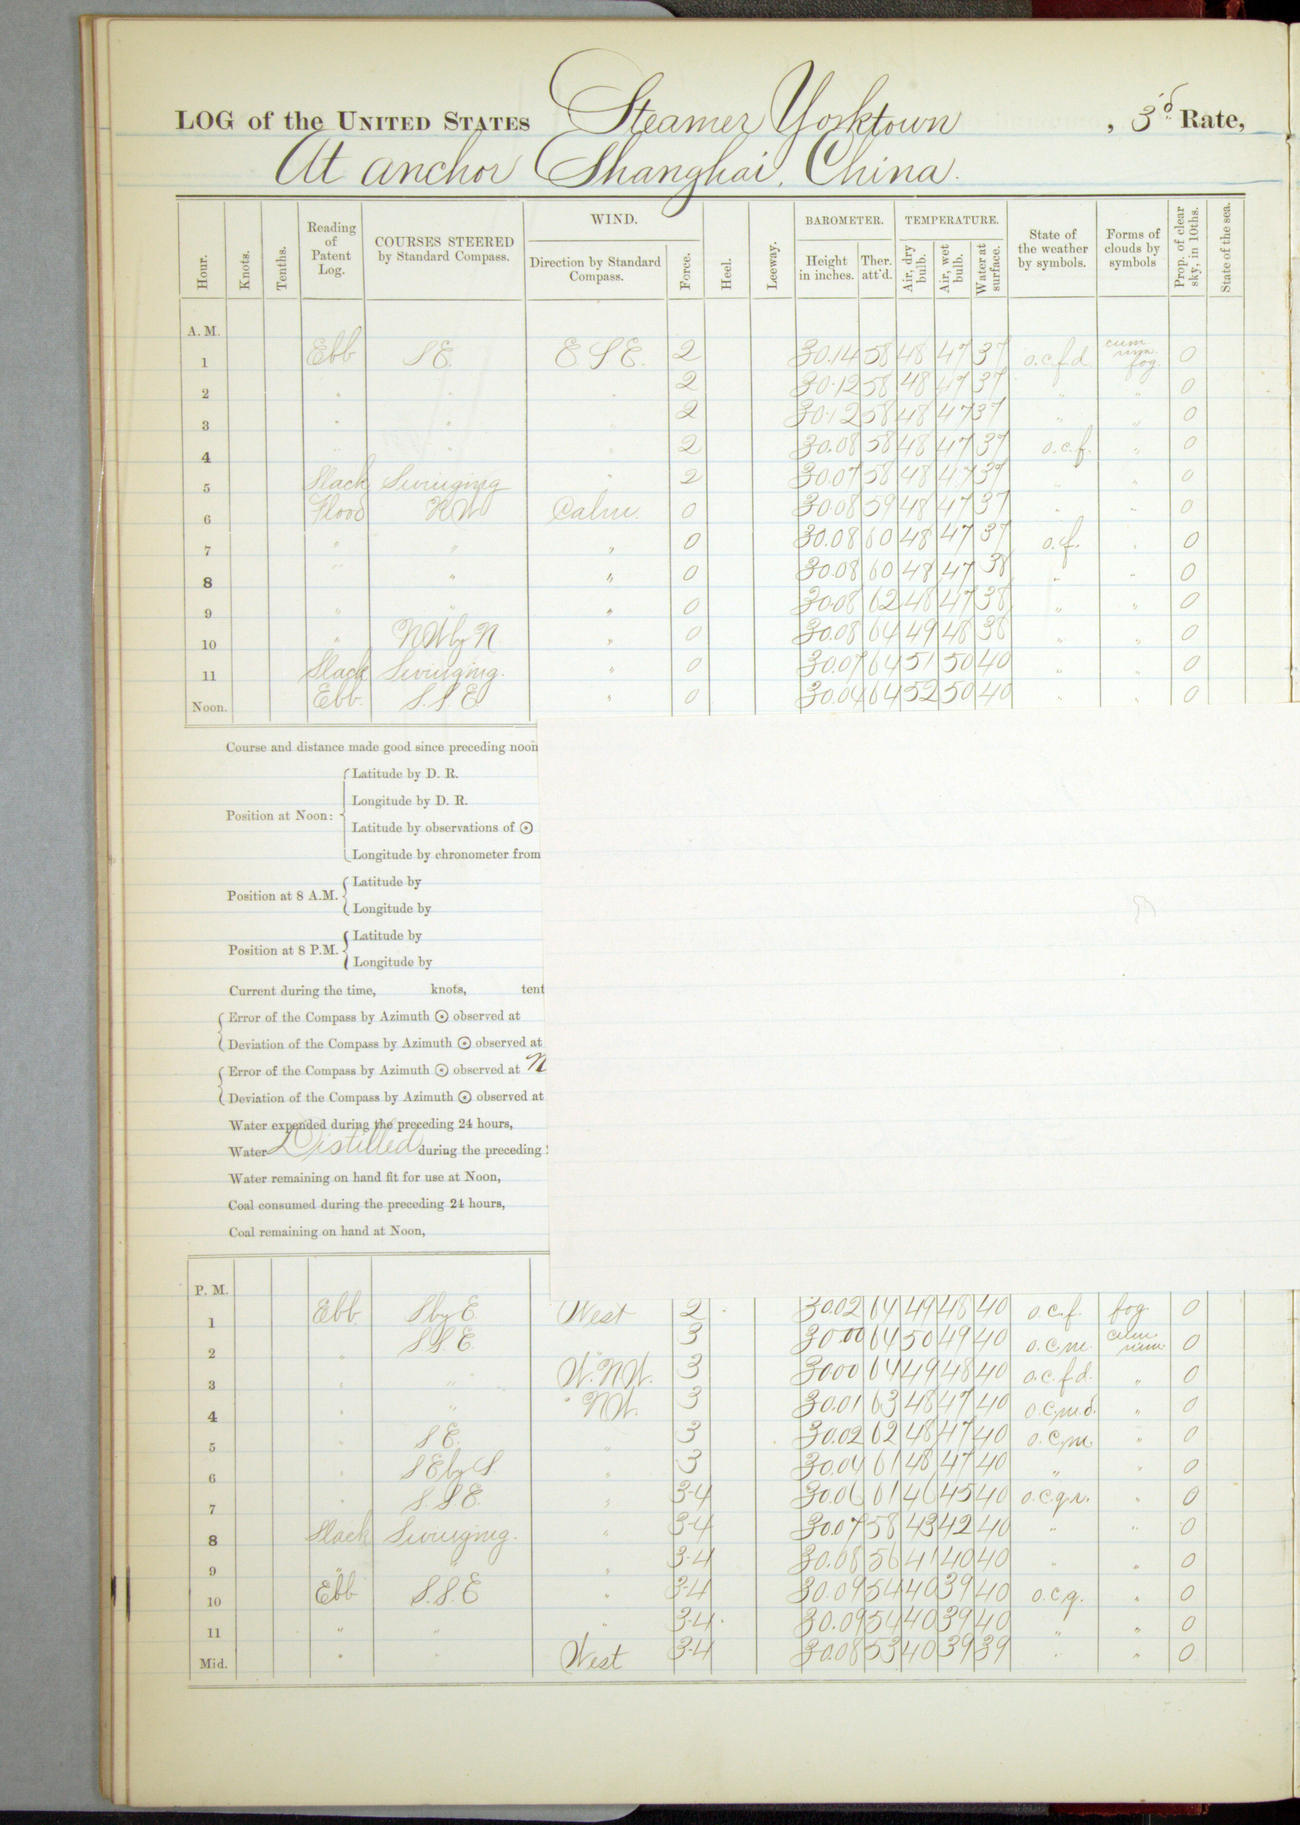 LOG of the UNITED STATES Steamer Yorktown , 3d Rate,
At anchor Shanghai, China.
Hour. Knots. Tenths. Reading of Patent Log. COURSES STEERED by Standard Compass. WIND. Direction by Standard Compass. Force. Heel. Leeway. BAROMETER. Height in inches. Ther. att'd. TEMPERATURE. Air, dry bulb. Air, wet bulb. Water at surface. State of the weather by symbols. Forms of clouds by symbols Prop. of clear sky, in 10ths. State of the sea.
A. M.
1 Ebb S.E. E.S.E. 2 30.14 58 48 47 37 o.c.f.d. cum nim. fog 0
2 " " " 2 30.12 58 48 47 37 " " 0
3 " " " 2 30.12 58 48 47 37 " " 0
4 " " " 2 30.08 58 48 47 37 o.c.f. " 0
5 Slack Swinging " 2 30.07 58 48 47 37 " " 0
6 Flood NW Calm. 0 30.08 59 48 47 37 " " 0
7 " " " 0 30.08 60 48 47 37 o.f. " 0
8 " " " 0 30.08 60 48 47 38 " " 0
9 " " " 0 30.08 62 48 47 38 " " 0
10 " NW by N " 0 30.08 64 49 48 38 " " 0
11 Slack Swinging. " 0 30.07 64 51 50 40 " " 0
Noon. Ebb. S.S.E. " 0 30.04 64 52 50 40 " " 0
Course and distance made good since preceding noon
Position at Noon:
Latitude by D. R.
Longitude by D. R.
Latitude by observations of ☉
Longitude by chronometer from
Position at 8 A.M.
Latitude by
Longitude by
Position at 8 P.M.
Latitude by
Longitude by
Current during the time, knots, tent
Error of the Compass by Azimuth ☉ observed at
Deviation of the Compass by Azimuth ☉ observed at
Error of the Compass by Azimuth ☉ observed at N
Deviation of the Compass by Azimuth ☉ observed at
Water expended during the preceding 24 hours,
Water Distilled during the preceding
Water remaining on hand fit for use at Noon,
Coal consumed during the preceding 24 hours,
Coal remaining on hand at Noon,
P. M.
1 Ebb S by E West 2 30.02 64 49 48 40 o.c.f. fog 0
2 " S.S.E. " 3 30.00 64 50 49 40 o.c.m. cum. nim. 0
3 " " W.NW. 3 30.00 64 49 48 40 o.c.f.d. " 0
4 " " NW. 3 30.01 63 48 47 40 o.c.m.d. " 0
5 " S.E. " 3 30.02 62 48 47 40 o.c.m. " 0
6 " SE by S. " 3 30.04 61 48 47 40 " " 0
7 " S.S.E. " 3-4 30.06 61 46 45 40 o.c.q.r. " 0
8 Slack Swinging. " 3-4 30.07 58 43 42 40 " " 0
9 " " " 3-4 30.08 56 41 40 40 " " 0
10 Ebb S.S.E " 3-4 30.09 54 40 39 40 o.c.q. " 0
11 " " " 3-4 30.09 54 40 39 40 " " 0
Mid. " " West 3-4 30.08 53 40 39 39 " " 0